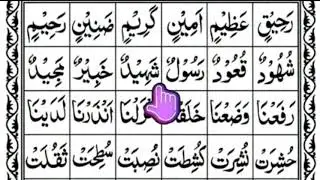 رَحِيْقٍ عَظِيْمٍ اَمِيْنٍ كَرِيْمٍ ضَنِيْنٍ رَحِيْمٍ
شُهُوْدٌ قُعُوْدٌ رَسُوْلٌ شَهِيْدٌ خَبِيْرٌ مَجِيْدٌ
رَفَعْنَا وَضَعْنَا اَنْذَرْنَا لَدَيْنَا
حُشِرَتْ نُشِرَتْ كُشِطَتْ نُصِبَتْ سُطِحَتْ ثَقُلَتْ